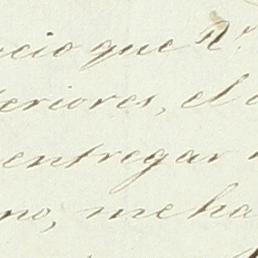 icio que R.
teriores, el
entregar
no, me ha